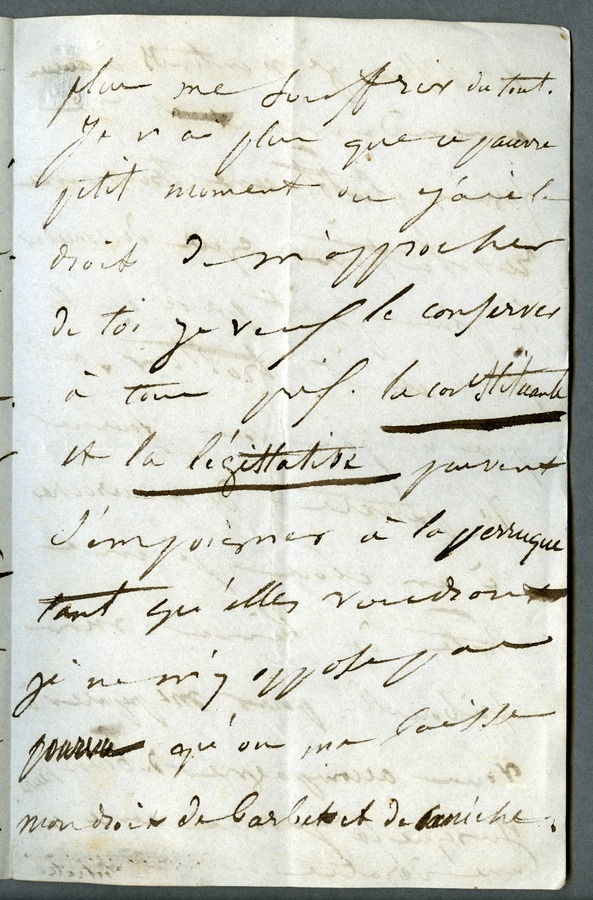 plus me souffrir du tout.
Je n'ai plus que ce pauvre
petit moment où j'ai le
droit de m'approcher
de toi je veux le conserver
à tout prix. la constituante
et la législative peuvent
s'empoigner à la perruque
tant qu'elles voudront
je ne m'y oppose pas
pourvu qu'on me laisse
mon droit de barbet et de caniche.